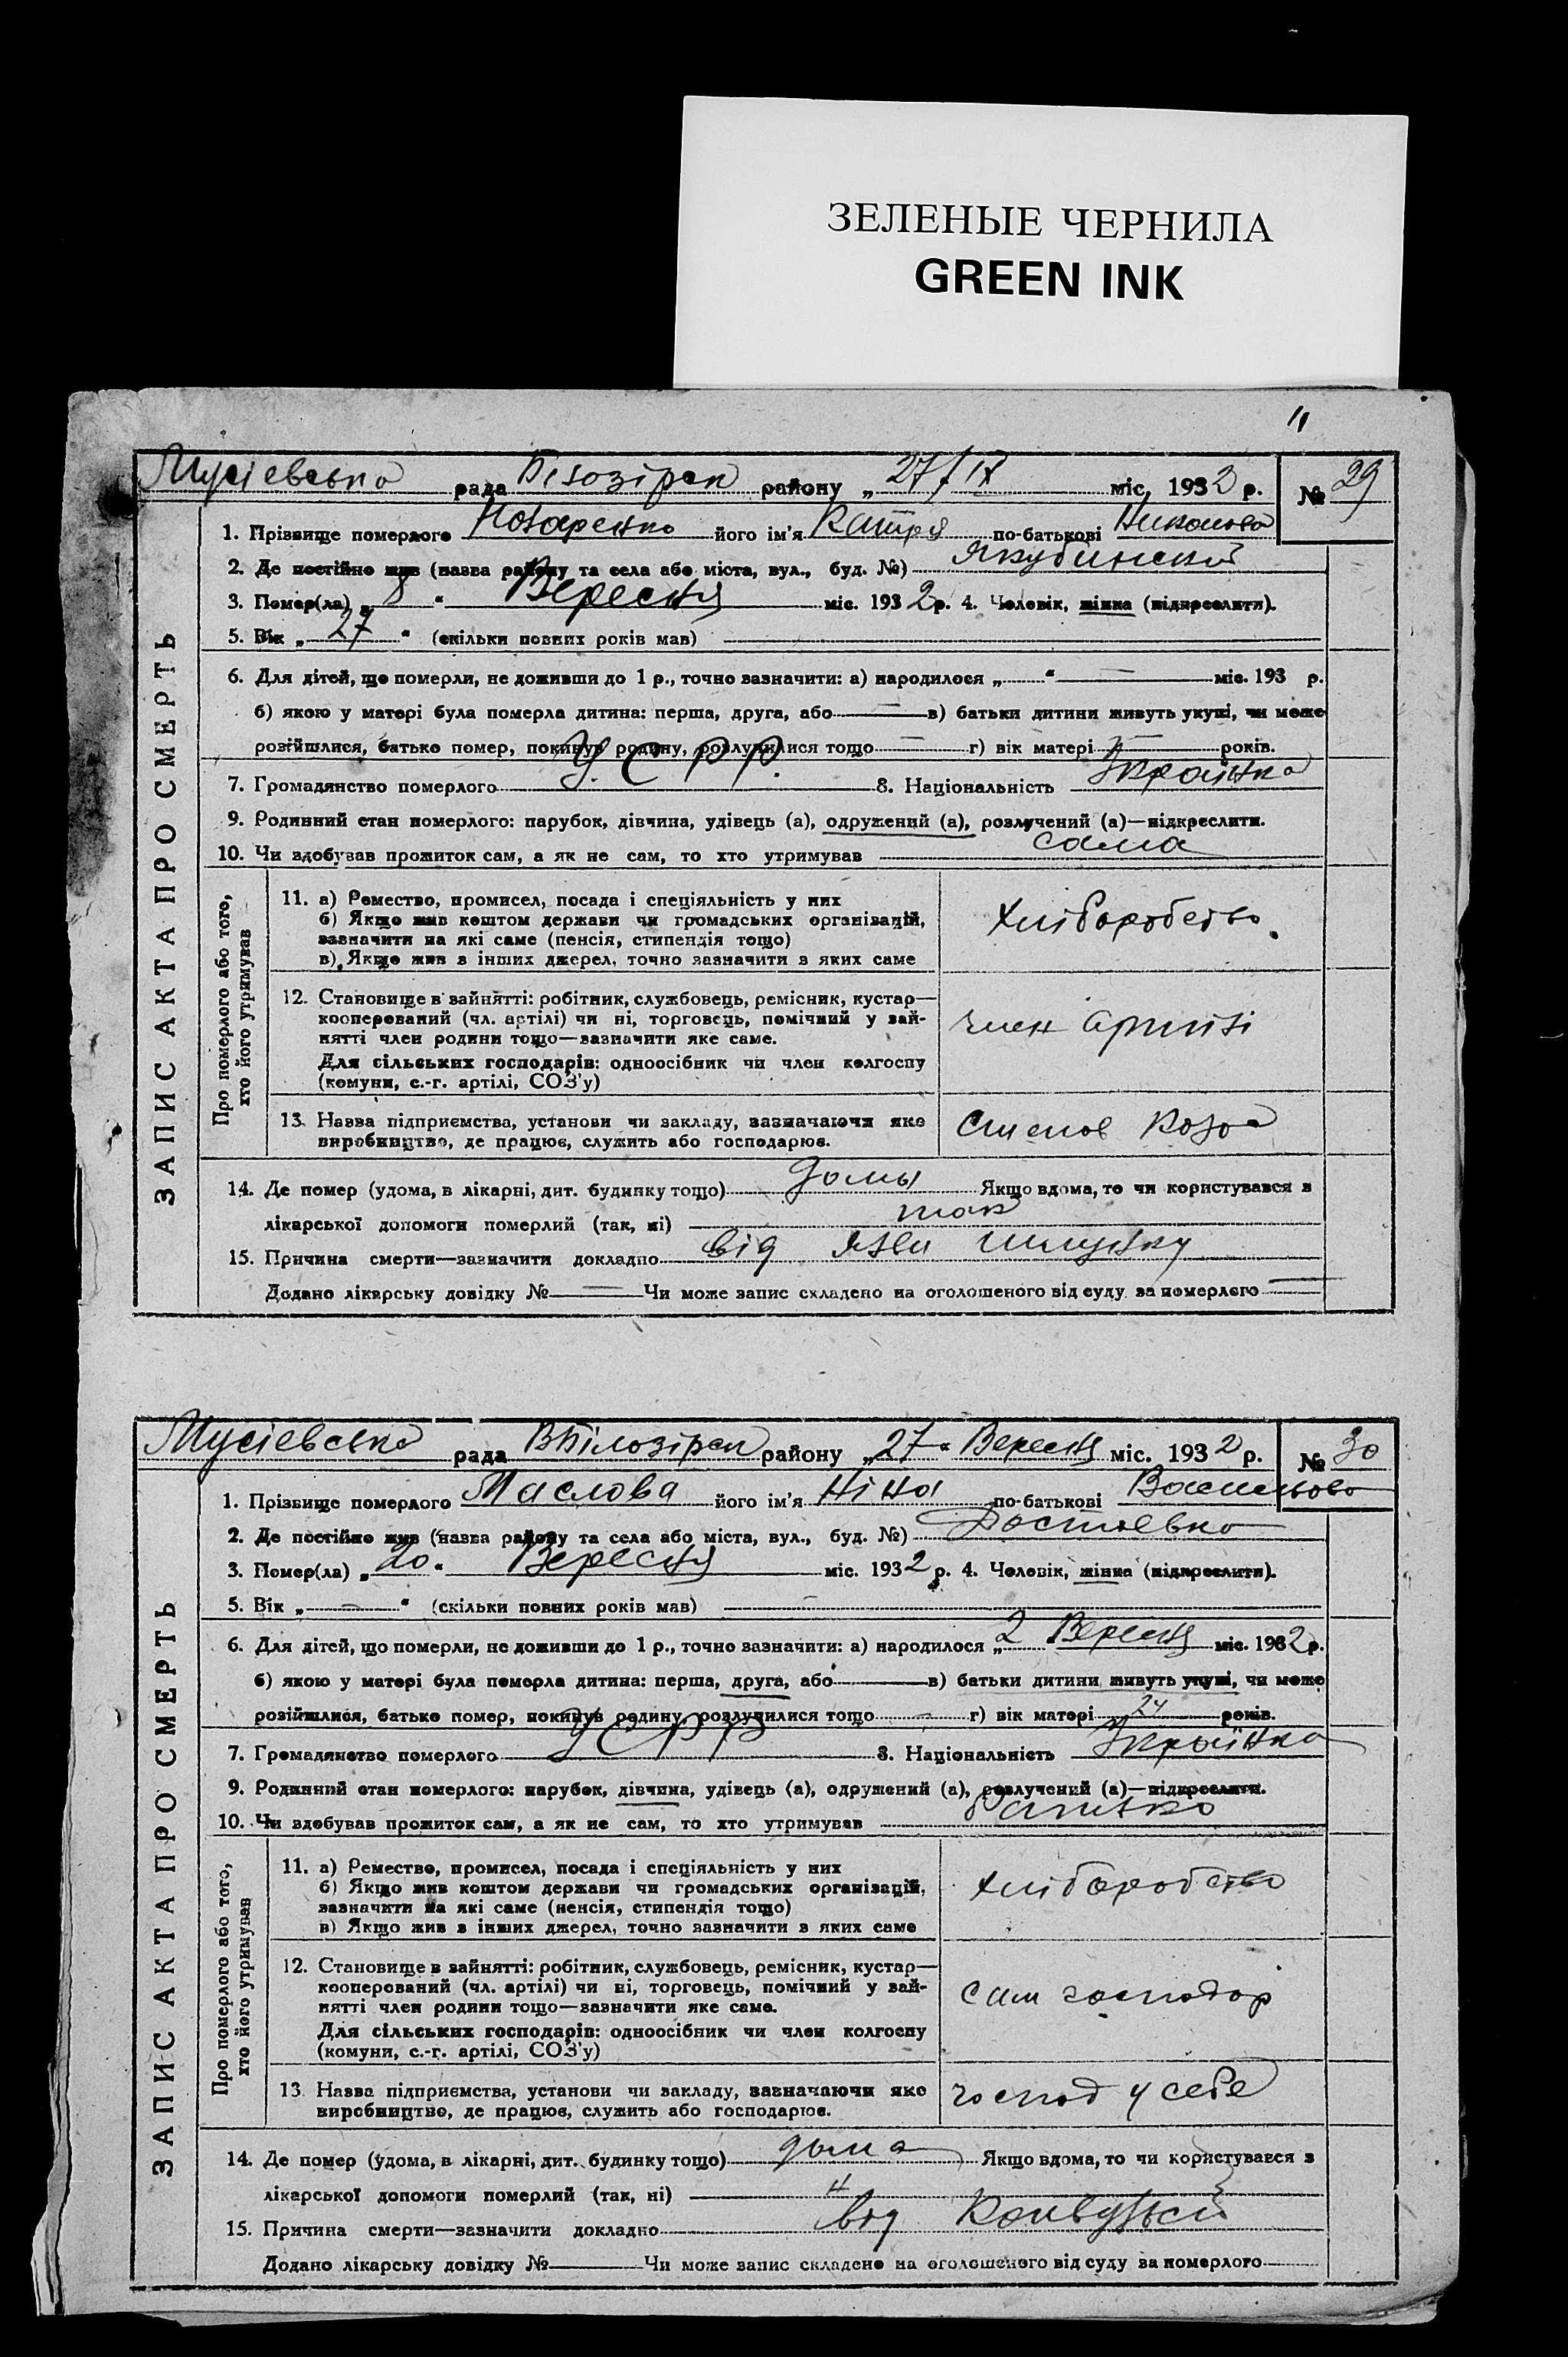 ЗЕЛЕНЫЕ ЧЕРНИЛА
GREEN INK
11
Мусіевська рада Білозірск району „ 27/IX міс. 1932 р. № 29
1. Прізвище померлого його ім'я Катря по-батькові
2. Де постійно жив (назва району та села або міста, вул., буд. №) Якубинской
3. Помер(ла) „ 8 “ Вересня міс. 1932 р. 4. Чоловік, жінка (підкреслити).
5. Вік „ 27 “ (скільки повних років мав)
6. Для дітей, що померли, не доживши до 1 р., точно зазначити: а) народилося „ “ — міс. 193 р.
б) якою у матері була померла дитина: перша, друга, або — в) батьки дитини живуть укупі, чи може
розійшлися, батько помер, покинув родину, розлучилися тощо — г) вік матері — років.
7. Громадянство померлого У.С.Р.Р. 8. Національність Украінка
9. Родинний стан померлого: парубок, дівчина, удівець (а), одружений (а), розлучений (а)—підкреслити.
10. Чи здобував прожиток сам, а як не сам, то хто утримував сама
ЗАПИС АКТА ПРО СМЕРТЬ
Про померлого або того,
хто його утримував
11. а) Ремество, промисел, посада і спеціяльність у них
б) Якщо жив коштом держави чи громадських організацій,
зазначити на які саме (пенсія, стипендія тощо)
в) Якщо жив з інших джерел, точно зазначити з яких саме
Хліборобство
12. Становище в занятті: робітник, службовець, ремісник, кустар—
кооперований (чл. артілі) чи ні, торговець, помічний у зай-
нятті член родини тощо—зазначити яке саме.
Для сільських господарів: одноосібник чи член колгоспу
(комуни, с.-г. артілі, СОЗ'у)
член Артілі
13. Назва підприємства, установи чи закладу, зазначаючи яке
виробництво, де працює, служить або господарює.
14. Де помер (удома, в лікарні, дит. будинку тощо) домы Якщо вдома, то чи користувався з
лікарської допомоги померлий (так, ні) так
15. Причина смерти—зазначити докладно від язви шлунку
Додано лікарську довідку № — Чи може запис складено на оголошеного від суду за померлого —
Мусіевська рада ВБілозірск району „ 27 “ Вересня міс. 1932 р. № 30
1. Прізвище померлого Маслова його ім'я Ніна по-батькові Васильова
2. Де постійно жив (назва району та села або міста, вул., буд. №)
3. Помер(ла) „ 20 “ Вересня міс. 1932 р. 4. Чоловік, жінка (підкреслити).
5. Вік „ — “ (скільки повних років мав) —
6. Для дітей, що померли, не доживши до 1 р., точно зазначити: а) народилося „ 2 Вересня міс. 1932 р.
б) якою у матері була померла дитина: перша, друга, або — в) батьки дитини живуть укупі, чи може
розійшлися, батько помер, покинув родину, розлучилися тощо — г) вік матері 24 років.
7. Громадянство померлого УСРР 8. Національність Украінка
9. Родинний стан померлого: парубок, дівчина, удівець (а), одружений (а), розлучений (а)—підкреслити.
10. Чи здобував прожиток сам, а як не сам, то хто утримував
ЗАПИС АКТА ПРО СМЕРТЬ
Про померлого або того,
хто його утримував
11. а) Ремество, промисел, посада і спеціяльність у них
б) Якщо жив коштом держави чи громадських організацій,
зазначити на які саме (пенсія, стипендія тощо)
в) Якщо жив з інших джерел, точно зазначити з яких саме
Хліборобство
12. Становище в зайнятті: робітник, службовець, ремісник, кустар—
кооперований (чл. артілі) чи ні, торговець, помічний у зай-
нятті член родини тощо—зазначити яке саме.
Для сільських господарів: одноосібник чи член колгоспу
(комуни, с.-г. артілі, СОЗ'у)
сам господар
13. Назва підприємства, установи чи закладу, зазначаючи яке
виробництво, де працює, служить або господарює.
господ у себе
14. Де помер (удома, в лікарні, дит. будинку тощо) дома Якщо вдома, то чи користувався з
лікарської допомоги померлий (так, ні) н
15. Причина смерти—зазначити докладно від Конвульсій
Додано лікарську довідку № — Чи може запис складено на оголошеного від суду за померлого —